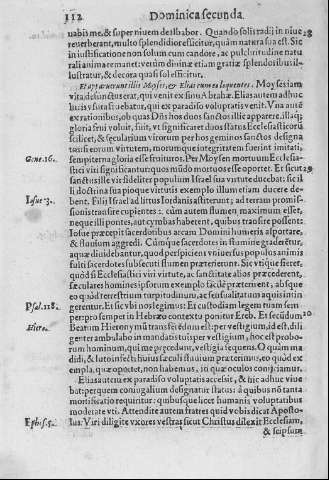 112 Dominica secunda.
uabis me, & super niuem dealbabor. Quando solis radij in niuē 28
reuerberant, multo splendidiores sicut, quàm natura sua est. Sic
in iustificatione non solum cum candore, ac pulchritudine natu
rali anima remanet: verùm diuinæ etiam gratiæ splendoribus il-
lustratur, & decora quasi sol efficitur.
Et apparuerunt illis Moyses, & Elias cum eo loquentes. Moyses iam
vita defunctus erat, qui venit ex sinu Abrahæ. Elias autem adhuc
huius vsura fruebatur, qui ex paradiso voluptatis venit. Vna autē
ex rationibus, ob quas Dñs hos duos sanctos illic apparere, illaq;
gloria frui voluit, fuit, vt significaret duos status: Ecclesiasticorū
scilicet, & secularium virorum per hos geminos sanctos designa
tus: si eorum vtutem, morumque integritatem fuerint imitati,
Gene. 16. sempiterna gloria esse fruituros. Per Moysen mortuum Ecclesia-
stici viri significantur: quos mūdo mortuos esse oportet. Et sicut 29
sanctus ille vir fideliter populum Israel suo virtute ducebat: sic il
li, doctrina sua pioque virtutis exemplo illum etiam ducere de-
Iosue 3. bent. Filij Israel ad littus Iordanis astiterunt; ad terram promis-
sionis transire cupientes: cùm autem flumen maximum esset,
neque illi pontes, aut cymbas haberent, quibus transire possent:
Iosue præcepit sacerdotibus arcam Domini humeris asportare,
& fluuium aggredi. Cùmque sacerdotes in flumine graderētur,
aquæ diuidebantur, quod perspiciens vniuersus populus animis
fulti sacerdotes subsecuti flumen præterierunt. Sic vtique fieret,
quòd si Ecclesiastici viri virtute, ac sanctitate alios præcederent,
sæculares homines ipsorum exemplo facilè præterirent, absque
eo quòd terrestrium turpitudinum, ac sensualitatū aquis istin
Psal. 118. gerentur. Et sic vbi nos legimus: Et custodiam legem tuam sem-
per: pro semper in Hebræo contextu ponitur Ereb. Et secūdūm 30
Hiero. Beatum Hieronymū transferēdum est: per vestigium, id est, dili
genter ambulabo in mandatis tuis per vestigium, hoc est probo-
rum hominum, qui me præcedant, vestigia sequens. O quàm ma
di, & lutoinfecti huius sæculi fluuium præterimus, eo quòd ex
empla, quæ oportet, non habemus, in quæ oculos conijciamus.
Elias autem ex paradiso voluptatis accessit, & hic adhuc viue
bat: per quem coniugalium designatur status: à quibus nō tanta
mortificatio requiritur: quibusque licet humanis voluptatibus
moderate vti. Attendite autem fratres quid vobis dicat Aposto-
Ephes. 5. lus: Viri diligite vxores vestras sicut Christus dilexit Ecclesiam,
& seipsum